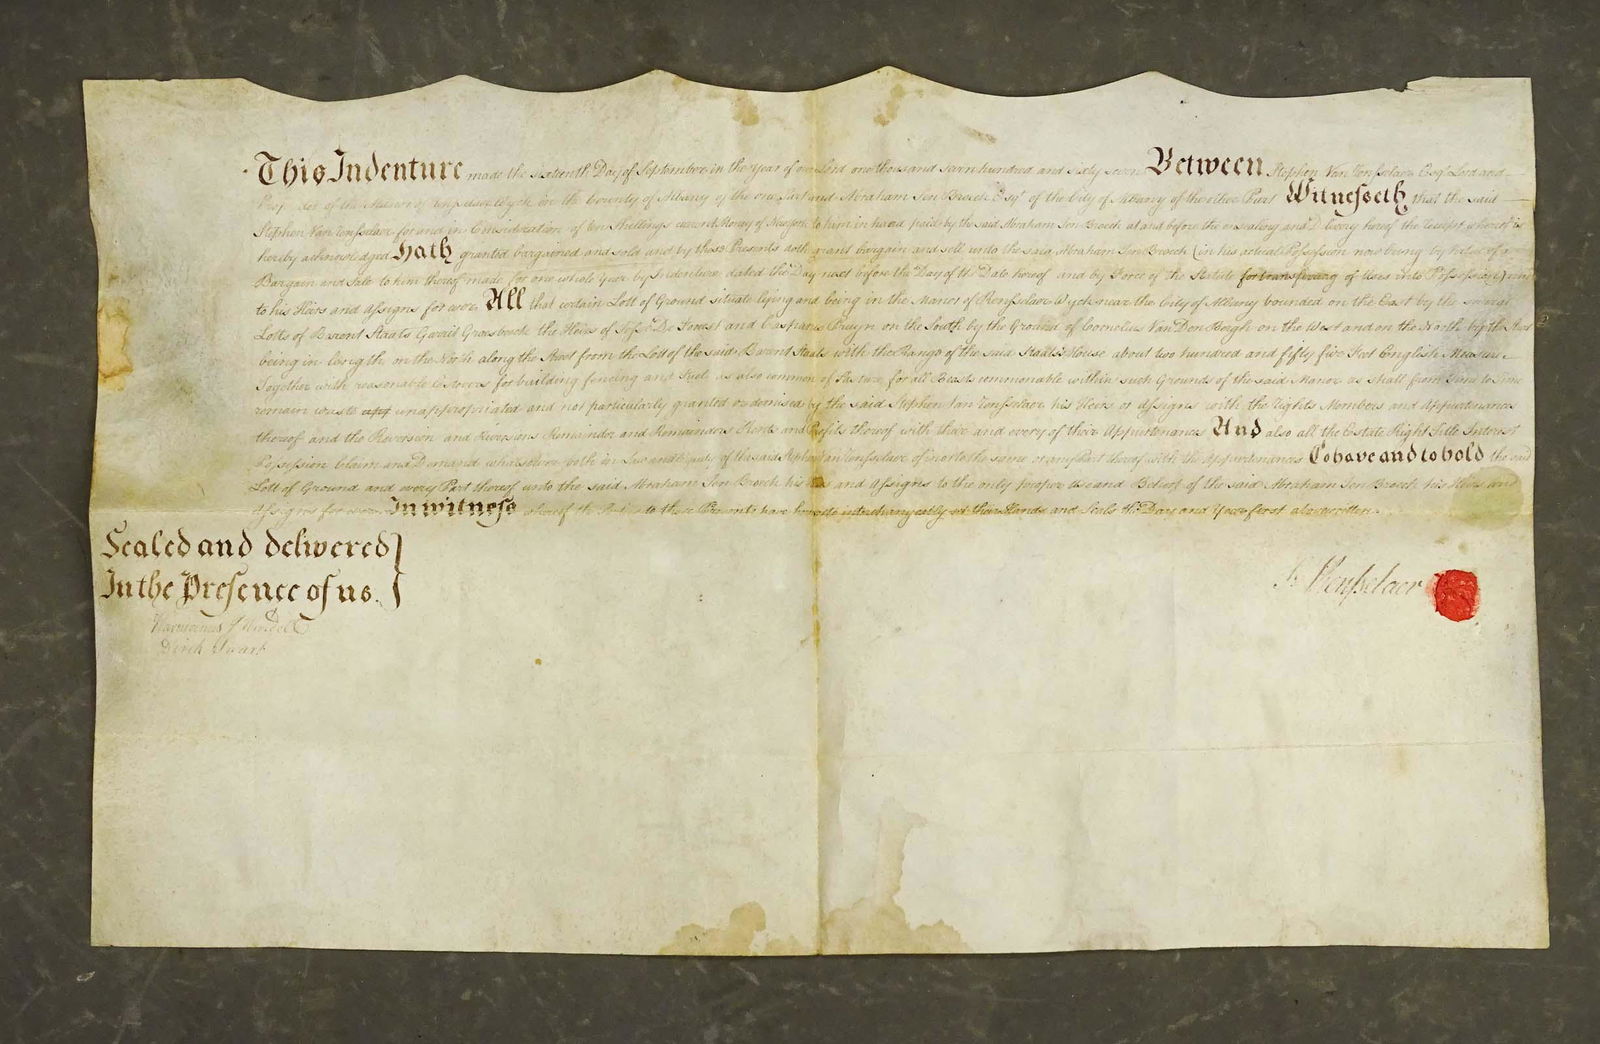 This Indenture made the sixteenth Day of September in the Year of our Lord one thousand seven hundred and sixty seven Between Stephen Van Rensselaer Esqr. Lord and
of the Manor of Renselaer Wych in the County of Albany of the one Part and Abraham Ten Broeck Esqr. of the City of Albany of the other Part Witnesseth that the said
Stephen Van Rensselaer for and in Consideration of ten Shillings current Money of New York to him in hand paid by the said Abraham Ten Broeck at and before the ensealing and Delivery hereof the Receipt whereof is
hereby acknowledged Hath granted bargained and sold and by these Presents doth grant bargain and sell unto the said Abraham Ten Broeck (in his actual Possession now being by Virtue of a
Bargain and Sale to him thereof made for one whole Year by Indenture dated the Day next before the Day of the Date hereof and by Force of the Statute for transferring of Uses into Possession) and
to his Heirs and Assigns for ever All that certain Lott of Ground situate lying and being in the Manor of Rensselaer Wych near the City of Albany bounded on the East by the several
Lotts of Barent Staats Gerrit Groesbeeck the Heirs of Jesse De Forest and Casparus Pruyn on the South by the Ground of Cornelius Van Den Bergh on the West and on the North by the
being in length on the North along the Street from the Lott of the said Barent Staats with the Range of the said Staats's House about two hundred and fifty five Feet English Measure
Together with reasonable Estovers for building fencing and Fuel as also common of Pasture for all Beasts commonable within such Grounds of the said Manor as shall from Time to Time
remain waste and unappropriated and not particularly granted or demised by the said Stephen Van Rensselaer his Heirs or Assigns with the Rights Members and Appurtenances
thereof and the Reversion and Reversions Remainder and Remainders Rents and Profits thereof with their and every of their Appurtenances And also all the Estate Right Title Interest
Possession Claim and Demand whatsoever both in Law and Equity of the said Stephen Van Rensselaer of in or to the same or any Part thereof with the Appurtenances To have and to hold the said
Lott of Ground and every Part thereof unto the said Abraham Ten Broeck his Heirs and Assigns to the only proper Use and Behoof of the said Abraham Ten Broeck his Heirs and
Assigns for ever In witness whereof the Parties to these Presents have hereunto interchangeably set their Hands and Seals the Day and Year first above written.
Sealed and delivered
In the Presence of us.
Rensselaer
Harmanus
Dirck